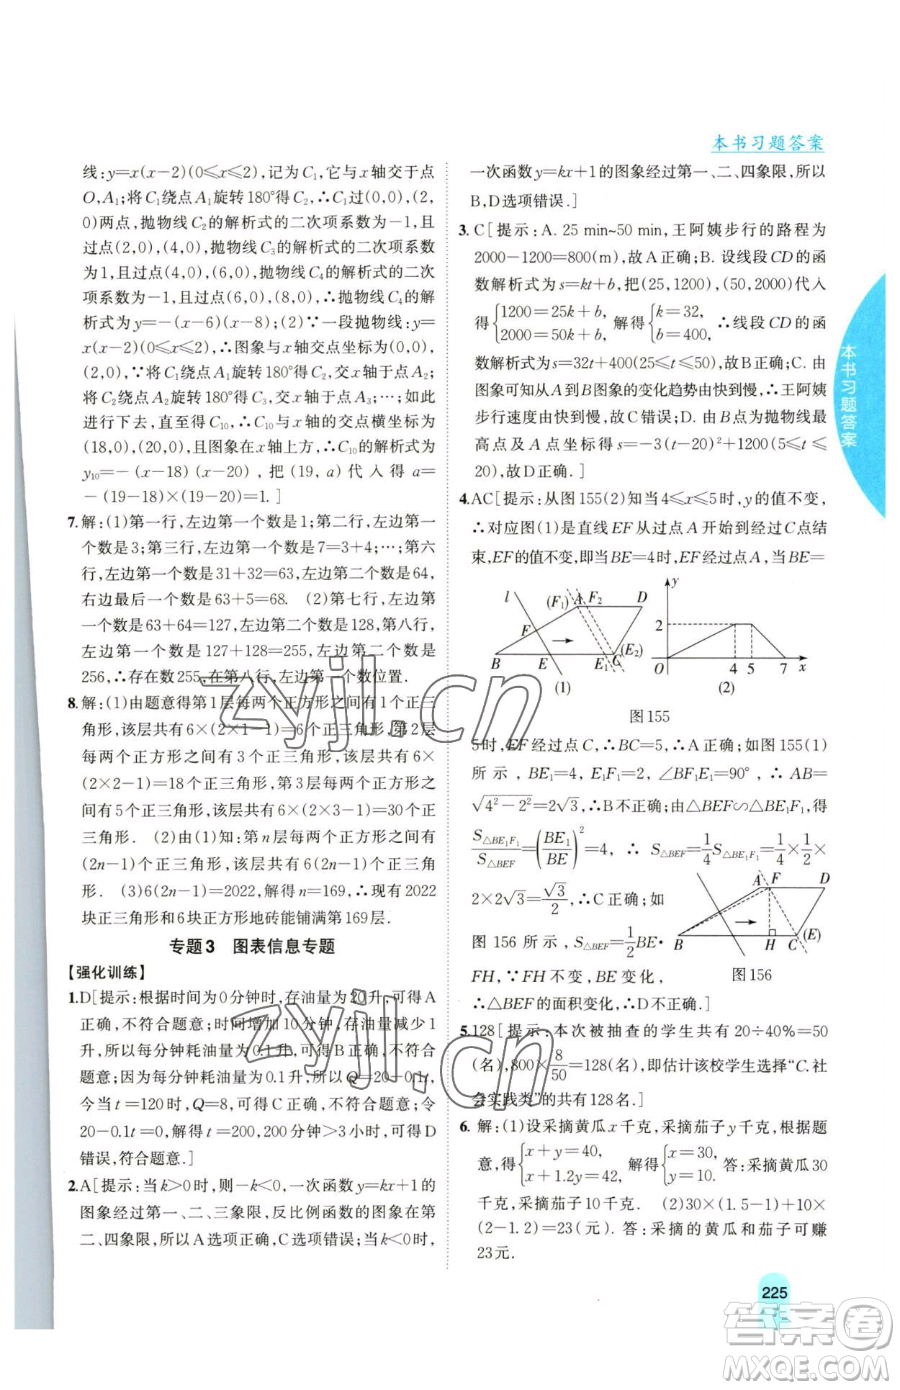 本书习题答案
线:y=x(x-2)(0≤x≤2),记为C₁,它与x轴交于点
O,A₁;将C₁绕点A₁旋转180°得C₂,∴C₁过(0,0),(2,
0)两点,抛物线C₂的解析式的二次项系数为-1,且
过点(2,0),(4,0),∴抛物线C₃的解析式的二次项系
数为1,且过点(4,0),(6,0),∴抛物线C₄的解析式的二次
项系数为-1,且过点(6,0),(8,0),∴抛物线C₄的解
析式为y=-(x-6)(x-8);(2)∵一段抛物线:y=
x(x-2)(0≤x≤2),∴图象与x轴交点坐标为(0,0),
(2,0);将C₁绕点A₁旋转180°得C₂,交x轴于点A₂;
将C₂绕点A₂旋转180°得C₃,交x轴于点A₃;…;如
此进行下去,直至得C₁₀,∴C₁₀与x轴的交点横坐标为
(18,0),(20,0),且图象在x轴上方,∴C₁₀的解析式为
y₁₀=-(x-18)(x-20),把(19,a)代入得a=
-(19-18)×(19-20)=1.]
7.解:(1)第一行,左边第一个数是1;第二行,左边第一
个数是3;第三行,左边第一个数是7=3+4;…;第六
行,左边第一个数是31+32=63,左边第二个数是64,
右边最后一个数是63+5=68. (2)第七行,左边第一
个数是63+64=127,左边第二个数是128,第八行,左
边第一个数是127+128=255,左边第二个数是
256,∴存在数255,在第八行,左边第一个数位置.
8.解:(1)由题意得第1层每两个正方形之间有1个正三
角形,该层共有6×(2×1-1)=6个正三角形,第2层
每两个正方形之间有3个正三角形,该层共有6×
(2×2-1)=18个正三角形,第3层每两个正方形之
间有5个正三角形,该层共有6×(2×3-1)=30个正
三角形. (2)由(1)知:第n层每两个正方形之间有
(2n-1)个正三角形,该层共有6(2n-1)个正三角
形. (3)6(2n-1)=2022,解得n=169,∴现有2022
块正三角形和6块正方形地砖能铺满第169层.
专题3 图表信息专题
【强化训练】
1.D[提示:根据时间为0分钟时,存油量为20升,可得A
正确,不符合题意;时间增加10分钟,存油量减少1
升,可得每分钟耗油量为0.1升,可得B正确,不符合
题意;因为每分钟耗油量为0.1升,所以Q=20-0.1t,
今当t=120时,Q=8,可得C正确,不符合题意;令
20-0.1t=0,则t=200,200分钟大于3小时,可得D
错误,符合题意.]
2.A[提示:当k>0时,则-k<0,一次函数y=kx+1的
图象经过第一、二、三象限,反比例函数的图象在第
二、四象限,所以A选项正确,C选项错误;当k<0时,
一次函数y=kx+1的图象经过第一、二、四象限,所以
B,D选项错误.]
3.C[提示:A. 25 min~50 min,王阿姨步行的路程为
2000-1200=800(m),故A正确;B. 设线段CD的函
数解析式为s=kt+b,把(25,1200),(50,2000)代入
得{1200=25k+b, 2000=50k+b, 解得{k=32, b=400, ∴线段CD的函
数解析式为s=32t+400(25≤t≤50),故B正确;C. 由
图象可知从A到B图象的变化趋势由快到慢,∴王阿姨
步行速度由快到慢,故C错误;D. 由B点为抛物线最
高点及A点坐标得s=-3(t-20)²+1200(5≤t≤
20),故D正确.]
4.AC[提示:从图155(2)知当4≤x≤5时,y的值不变,
∴对应图(1)是直线EF从过点A开始到经过C点结
束,EF的值不变,即当BE=4时,EF经过点A,当BE=
l (F₁) A F₂ D F B E E₁ C (E₂) (1)
y 2 O 4 5 7 x (2)
图155
5时,EF经过点C,∴BC=5,∴A正确;如图155(1)
所示,BE₁=4,E₁F₁=2,∠BF₁E₁=90°,∴AB=
√(4²-2²)=2√3,∴B不正确;由△BEF∽△BE₁F₁,得
S△BE₁F₁/S△BEF=(BE₁/BE)²=4,∴S△BEF=1/4 S△BE₁F₁=1/4×1/2×
2×2√3=√3/2,∴C正确;
如
图156所示,S△BEF=1/2 BE·
FH,∵FH不变,BE变化,
∴△BEF的面积变化,∴D不正确.]
A F D B H C (E)
图156
5.128[提示:本次被抽查的学生共有20÷40%=50
(名),800×8/50=128(名),即估计该校学生选择“C.社
会实践类”的共有128名.]
6.解:(1)设采摘黄瓜x千克,采摘茄子y千克,根据题
意,得{x+y=40, x+1.2y=42, 解得{x=30, y=10. 答:采摘黄瓜30
千克,采摘茄子10千克. (2)30×(1.5-1)+10×
(2-1.2)=23(元). 答:采摘的黄瓜和茄子可赚
23元.
本书习题答案
225
zyjl.cn
zyjl.cn
答案圈
MXQE.COM